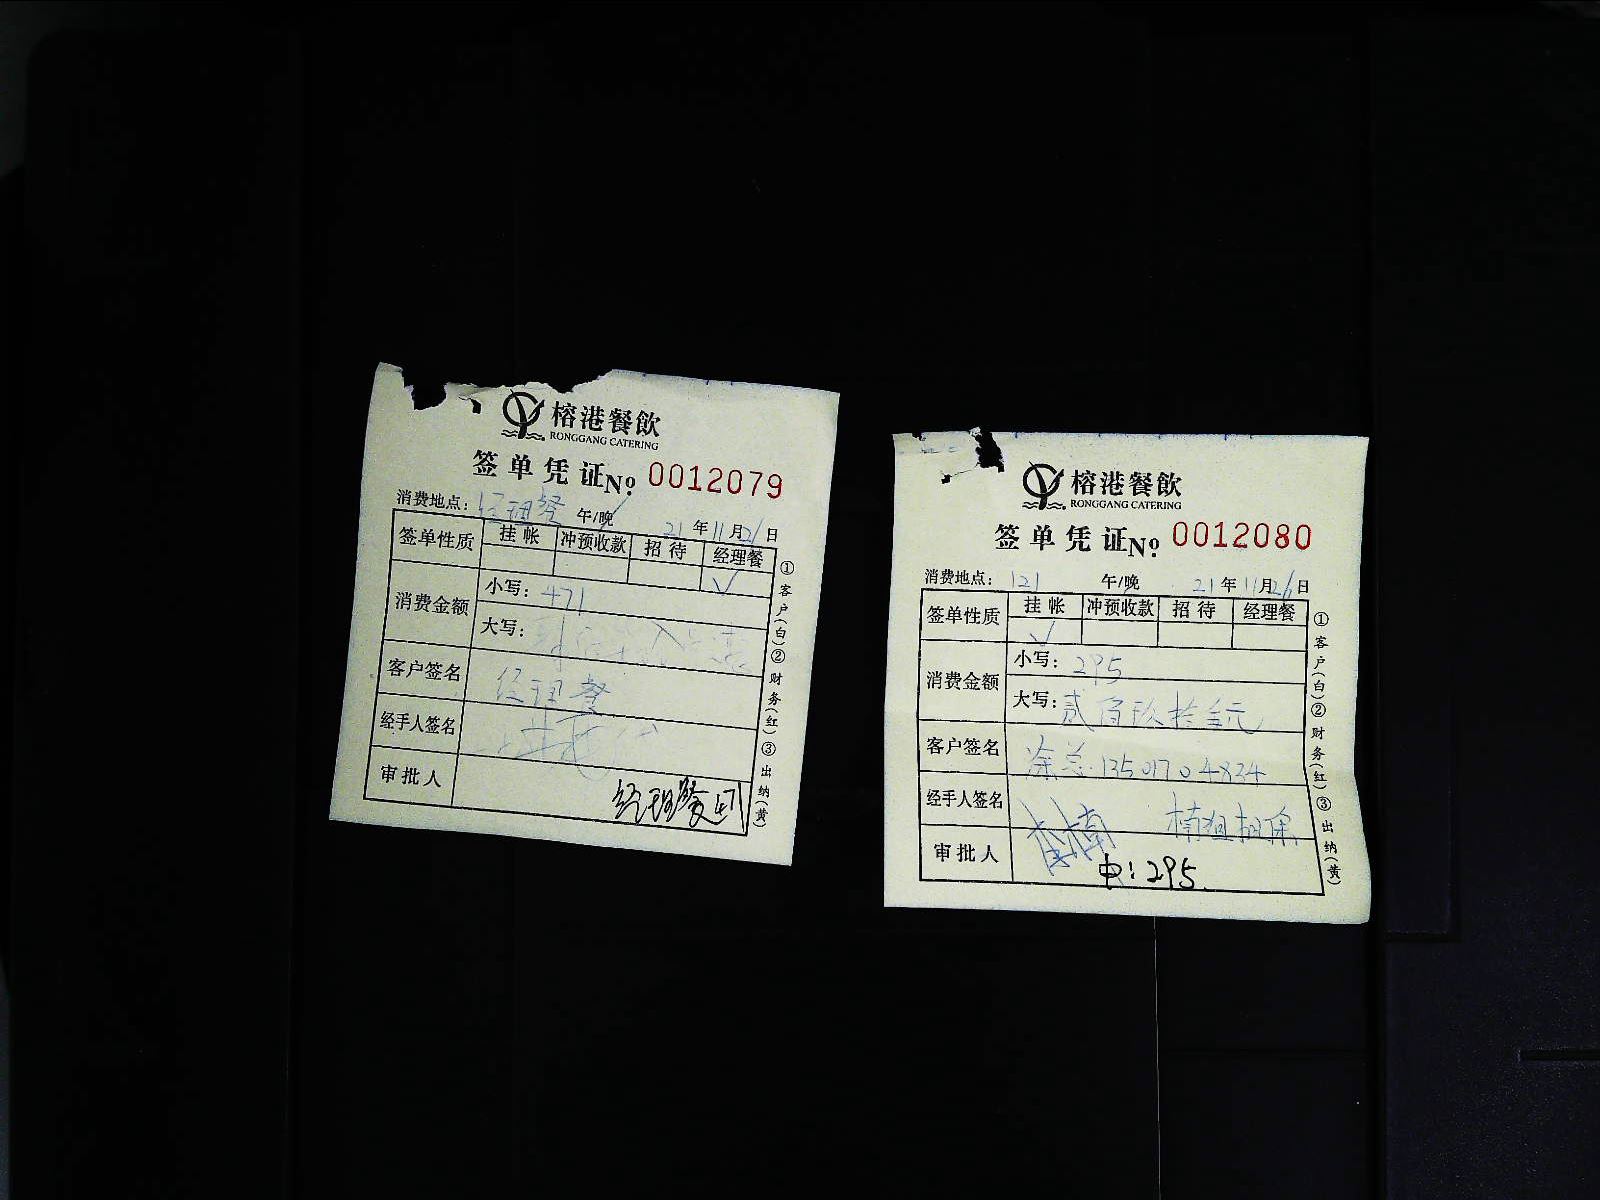 榕港餐飲
RONGGANG CATERING
签单凭证№ 0012079
消费地点：经理餐 午/晚 21年11月26日
签单性质 挂帐 冲预收款 招待 经理餐
√
消费金额 小写：471
大写：
客户签名 经理餐
经手人签名
审批人
经理餐471
①客户(白)②财务(红)③出纳(黄)
榕港餐飲
RONGGANG CATERING
签单凭证№ 0012080
消费地点：121 午/晚 21年11月26日
签单性质 挂帐 冲预收款 招待 经理餐
√
消费金额 小写：295
大写：贰佰玖拾伍元
客户签名 涂总 13501704834
经手人签名
审批人
中：295.
①客户(白)②财务(红)③出纳(黄)